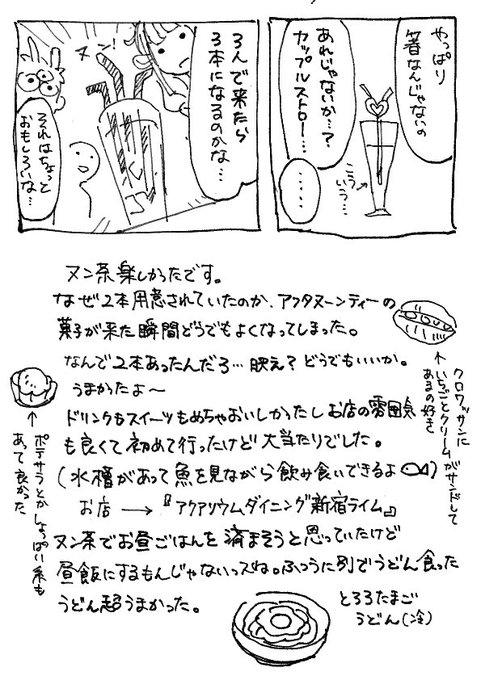 やっぱり
箸なんじゃないの
あれじゃないか…?
カップルストロー…
こう
いう…
……
3人で来たら
3本になるのかな…
ヌン!
それはちょっと
おもしろいな…
ヌン茶楽しかったです。
なぜ2本用意されていたのか、アフタヌーンティーの
菓子が来た瞬間どうでもよくなってしまった。
なんで2本あったんだろ…映え?どうでもいいか。
うまかったよ~
ドリンクもスイーツもめちゃおいしかったしお店の雰囲気
も良くて初めて行ったけど大当たりでした。
(水槽があって魚を見ながら飲み食いできるよ)
お店→『アクアリウムダイニング新宿ライム』
ヌン茶でお昼ごはんを済まそうと思っていたけど
昼飯にするもんじゃないっスね。ふつうに別でうどん食った
うどん超うまかった。
クロワッサンに
いちごとクリームがサンドして
あるの好き
ポテサラとかしょっぱい系も
あって良かった
とろろたまご
うどん(冷)